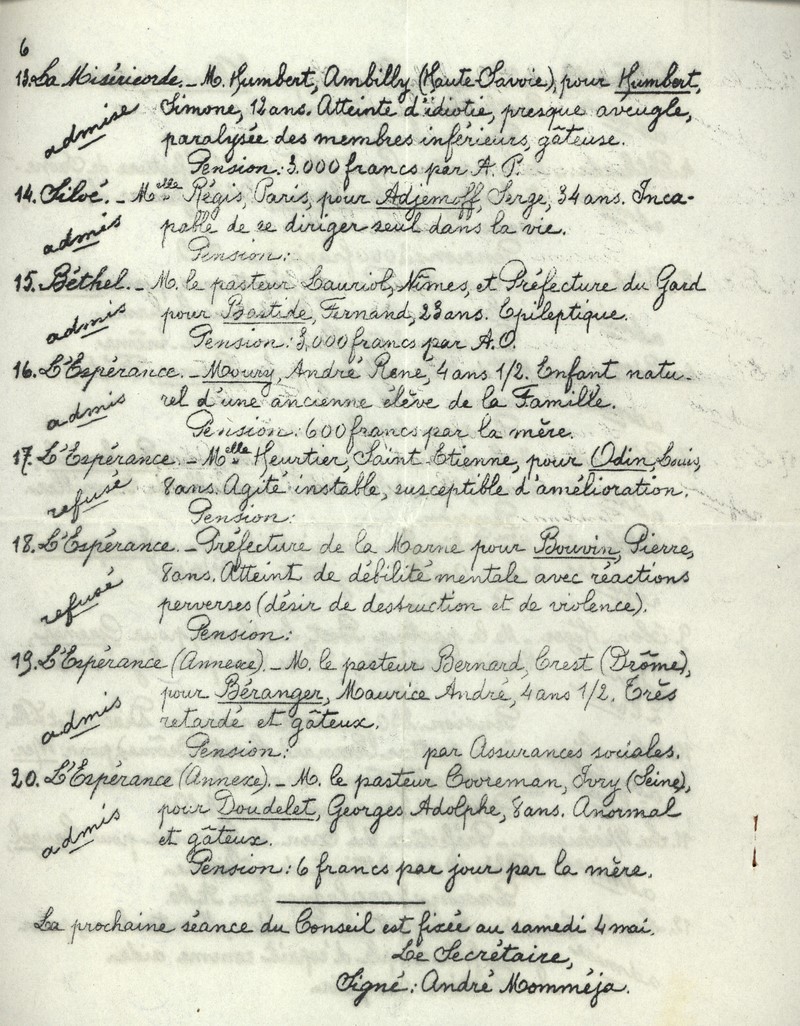 6
13. La Miséricorde. - M. Humbert, Ambilly (Haute-Savoie), pour Humbert,
admise
Simone, 12 ans. Atteinte d'idiotie, presque aveugle,
paralysée des membres inférieurs, gâteuse.
Pension: 3.000 francs par A. P.
14. Siloé. - Melle Régis, Paris, pour Adjemoff, Serge, 34 ans. Inca-
admis
pable de se diriger seul dans la vie.
Pension:
15. Béthel. - M. le pasteur Lauriol, Nîmes, et Préfecture du Gard
admis
pour Bastide, Fernand, 23 ans. Epileptique.
Pension: 3,000 francs par A.O.
16. L'Espérance. - Moury, André René, 4 ans 1/2. Enfant natu-
admis
rel d'une ancienne élève de la Famille.
Pension: 600 francs par la mère.
17. L'Espérance. - Melle Heurtier, Saint-Etienne, pour Odin, Louis,
refusé
8 ans. Agité instable, susceptible d'amélioration.
Pension:
18. L'Espérance. - Préfecture de la Marne pour Bouvin, Pierre,
refusé
8 ans. Atteint de débilité mentale avec réactions
perverses (désir de destruction et de violence).
Pension:
19. L'Espérance (Annexe). - M. le pasteur Bernard, Crest (Drôme),
admis
pour Béranger, Maurice André, 4 ans 1/2. Très
retardé et gâteux.
Pension: par Assurances sociales.
20. L'Espérance (Annexe). - M. le pasteur Cooreman, Ivry (Seine),
admis
pour Doudelet, Georges Adolphe, 8 ans. Anormal
et gâteux.
Pension: 6 francs par jour par la mère.
La prochaine séance du Conseil est fixée au samedi 4 mai.
Le Secrétaire,
Signé: André Momméja.